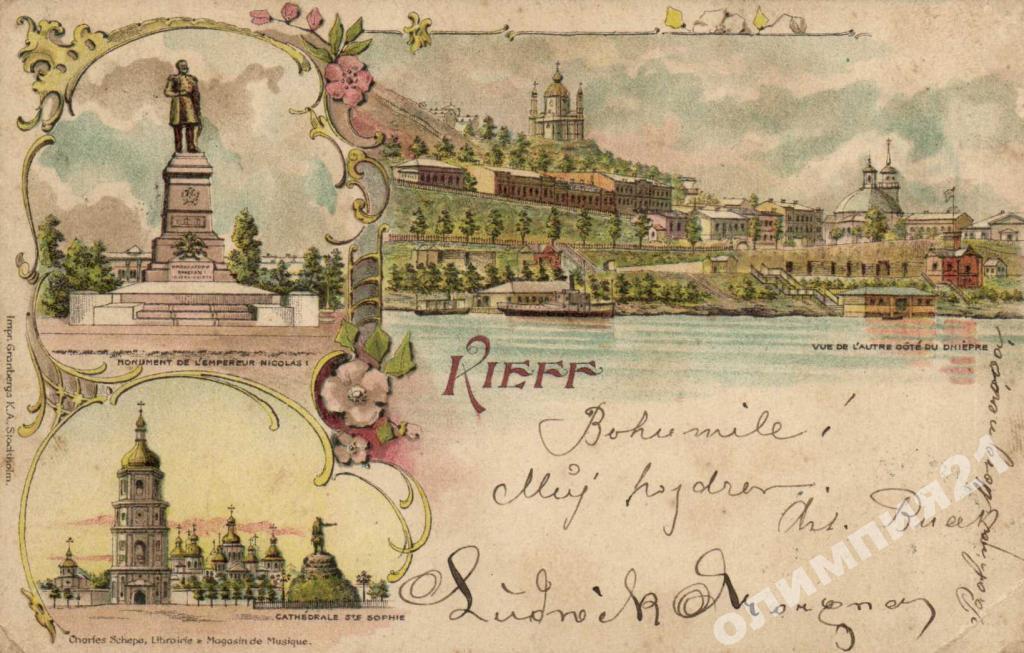 MONUMENT DE L'EMPEREUR NICOLAS I
VUE DE L'AUTRE CÔTÉ DU DNIÈPRE
KIEFF
Bohumile!
Můj pozdrav.
Ant.
Ludwik
CATHEDRALE STE SOPHIE
Charles Schepe, Librairie & Magasin de Musique.
Impr. Granbergs K.A., Stockholm.
олимпия21